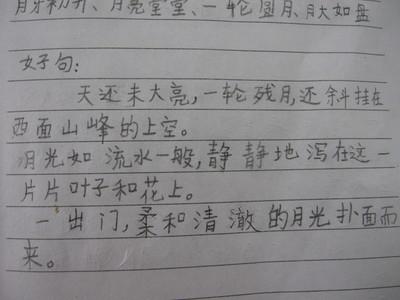 月牙初升、月亮堂堂、一轮圆月、月大如盘
好句:
天还未大亮,一轮残月,还斜挂在
西面山峰的上空。
月光如流水一般,静静地泻在这一
片片叶子和花上。
一出门,柔和清澈的月光扑面而
来。